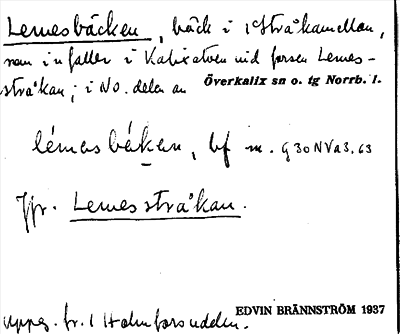 Lemesbäcken, bäck i Stråkanällan,
som infaller i Kalixälven vid forsen Lemes-
stråkan; i NO. delen av Överkalix sn o. tg Norrb. l.
lémasbäkan, bf m. G30NVa3,63
Jfr. Lemesstråkan.
Uppg. fr. 1 Holmforsudden.
EDVIN BRÄNNSTRÖM 1937